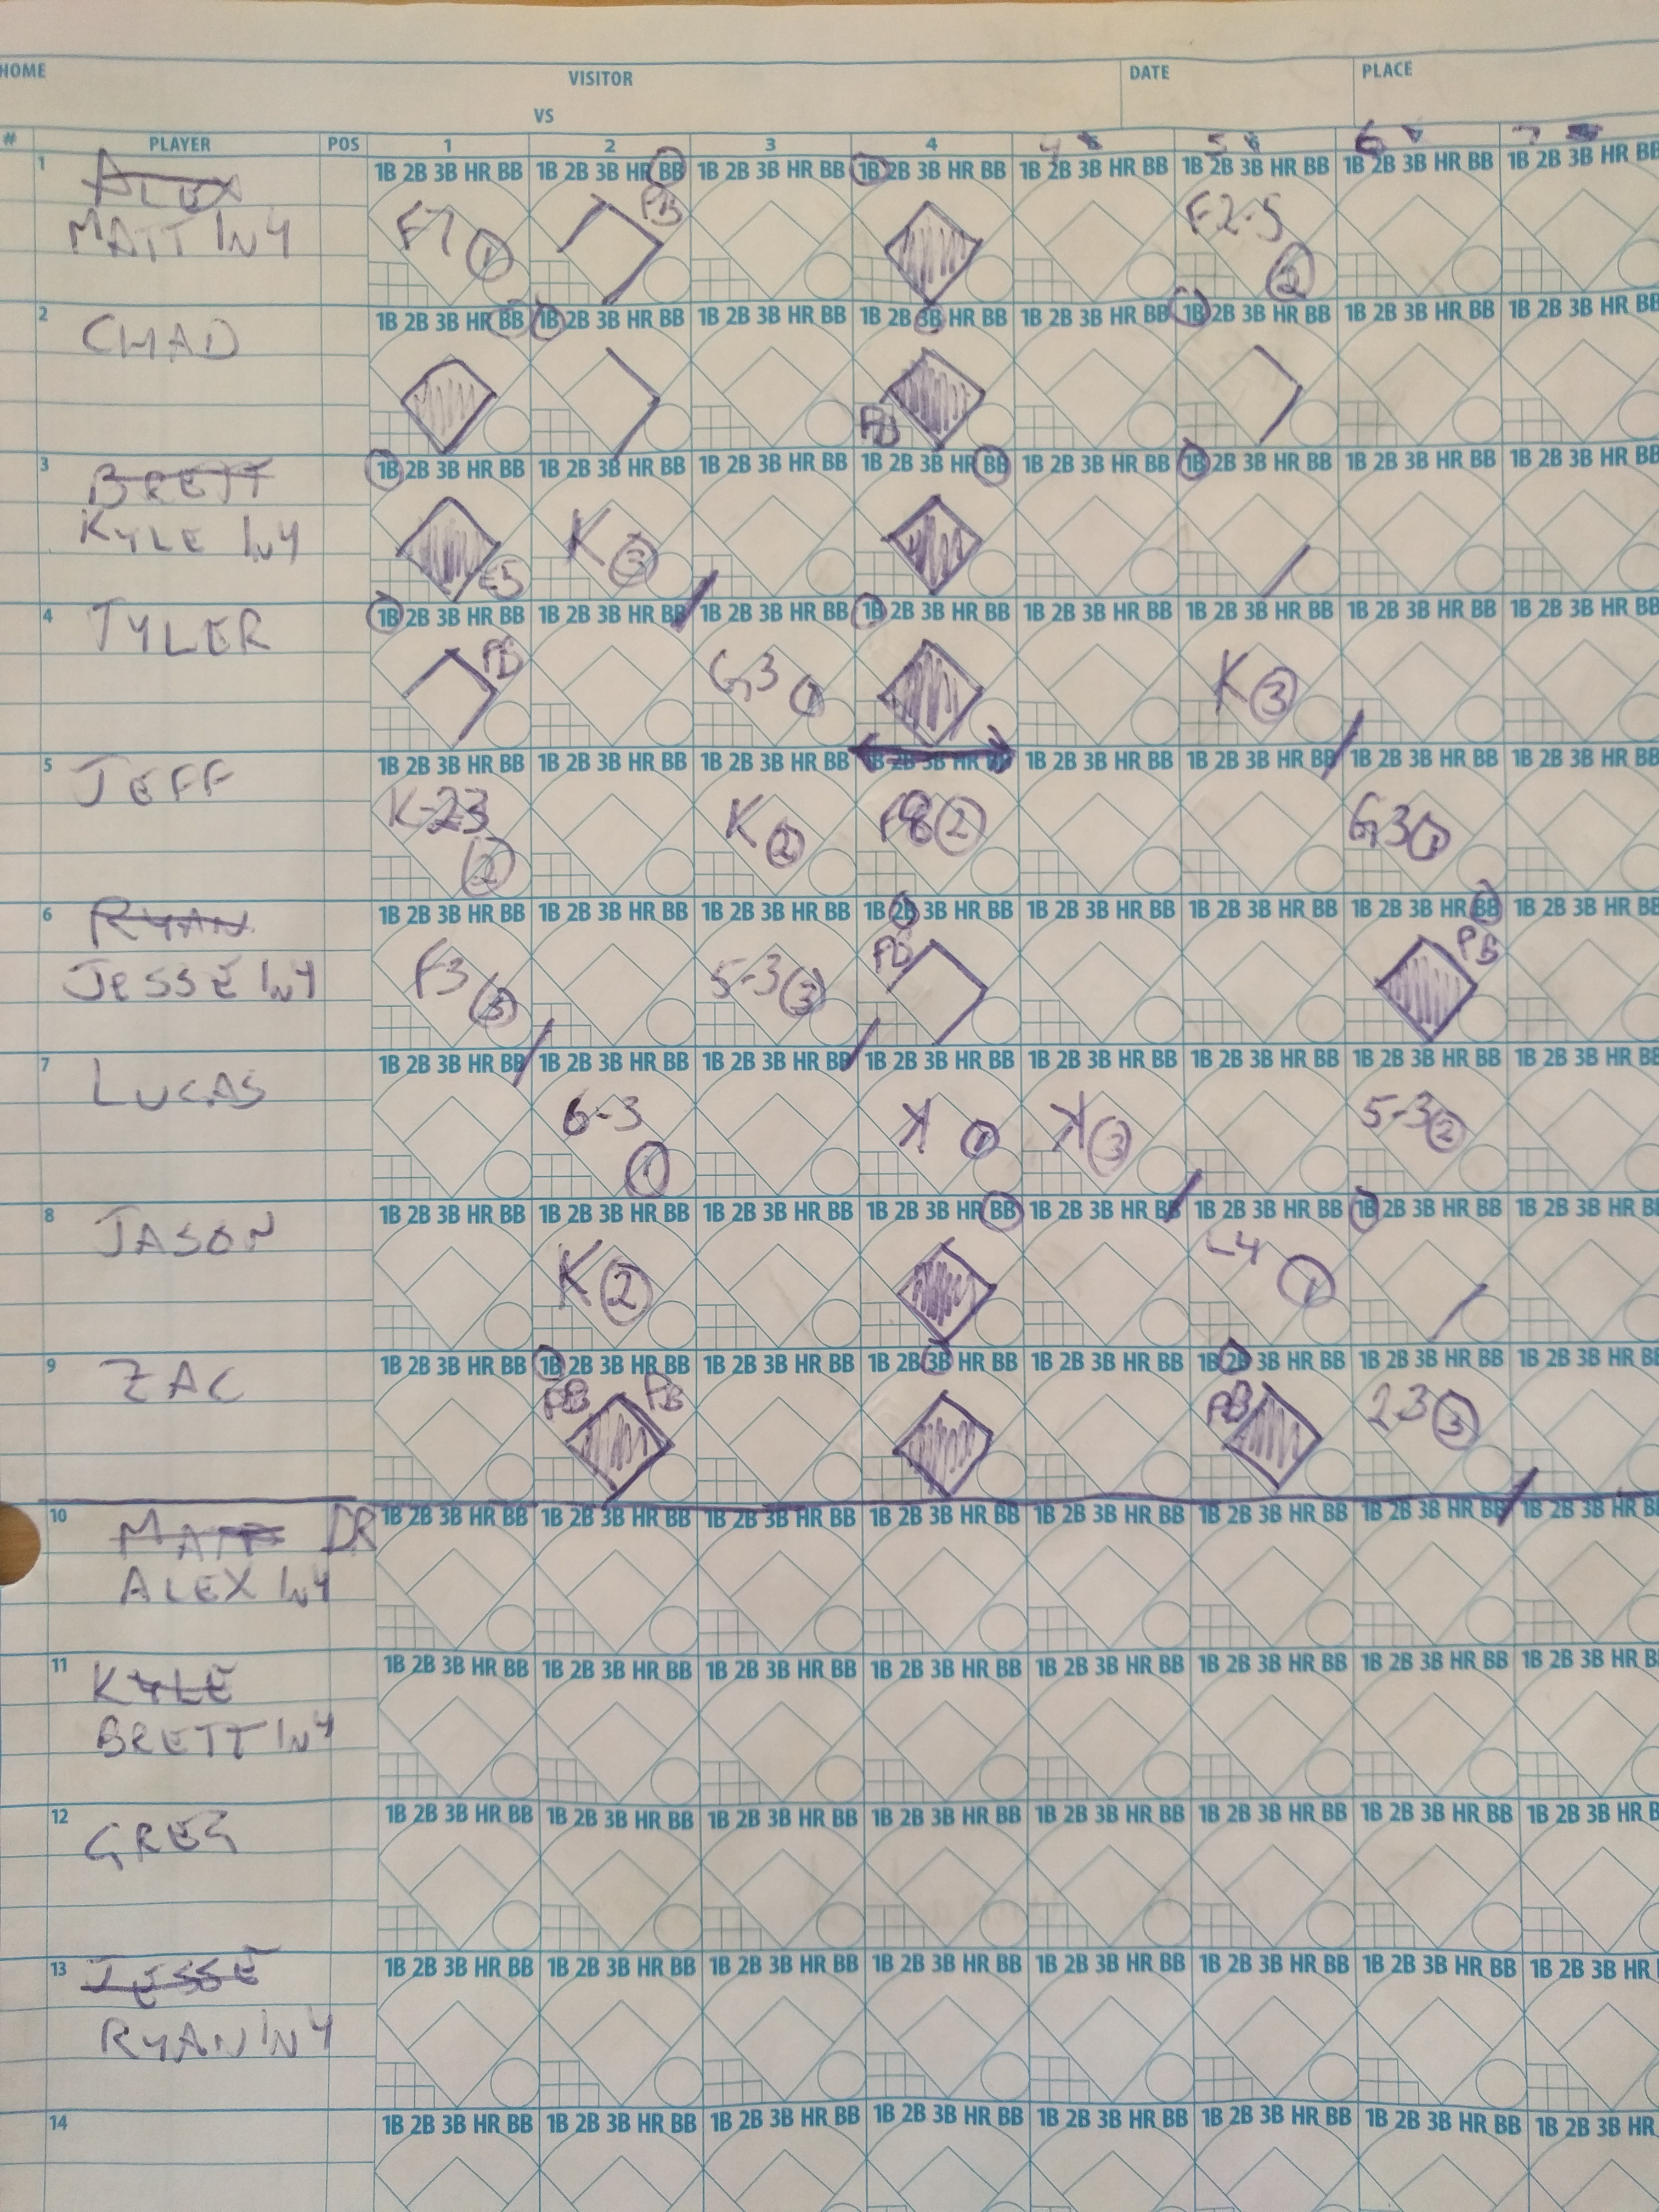 HOME VISITOR DATE PLACE
VS
# PLAYER POS 1 2 3 4 4 5 6 7
1 ALEX 1B 2B 3B HR BB 1B 2B 3B HR BB 1B 2B 3B HR BB 1B 2B 3B HR BB 1B 2B 3B HR BB 1B 2B 3B HR BB 1B 2B 3B HR BB 1B 2B 3B HR BB
MATT IN 4 F7 1 PB F2-5 2
2 CHAD 1B 2B 3B HR BB 1B 2B 3B HR BB 1B 2B 3B HR BB 1B 2B 3B HR BB 1B 2B 3B HR BB 1B 2B 3B HR BB 1B 2B 3B HR BB 1B 2B 3B HR BB
PB
3 BRETT 1B 2B 3B HR BB 1B 2B 3B HR BB 1B 2B 3B HR BB 1B 2B 3B HR BB 1B 2B 3B HR BB 1B 2B 3B HR BB 1B 2B 3B HR BB 1B 2B 3B HR BB
KYLE IN 4 E5 K 3
4 TYLER 1B 2B 3B HR BB 1B 2B 3B HR BB 1B 2B 3B HR BB 1B 2B 3B HR BB 1B 2B 3B HR BB 1B 2B 3B HR BB 1B 2B 3B HR BB 1B 2B 3B HR BB
PB G3 1 K 3
5 JEFF 1B 2B 3B HR BB 1B 2B 3B HR BB 1B 2B 3B HR BB 1B 2B 3B HR BB 1B 2B 3B HR BB 1B 2B 3B HR BB 1B 2B 3B HR BB 1B 2B 3B HR BB
K-23 2 K 2 F8 2 G3 1
6 RYAN 1B 2B 3B HR BB 1B 2B 3B HR BB 1B 2B 3B HR BB 1B 2B 3B HR BB 1B 2B 3B HR BB 1B 2B 3B HR BB 1B 2B 3B HR BB 1B 2B 3B HR BB
JESSE IN 4 F3 3 5-3 3 PB PB
7 LUCAS 1B 2B 3B HR BB 1B 2B 3B HR BB 1B 2B 3B HR BB 1B 2B 3B HR BB 1B 2B 3B HR BB 1B 2B 3B HR BB 1B 2B 3B HR BB 1B 2B 3B HR BB
6-3 1 K 1 K 3 5-3 2
8 JASON 1B 2B 3B HR BB 1B 2B 3B HR BB 1B 2B 3B HR BB 1B 2B 3B HR BB 1B 2B 3B HR BB 1B 2B 3B HR BB 1B 2B 3B HR BB 1B 2B 3B HR B
K 2 L4 1
9 ZAC 1B 2B 3B HR BB 1B 2B 3B HR BB 1B 2B 3B HR BB 1B 2B 3B HR BB 1B 2B 3B HR BB 1B 2B 3B HR BB 1B 2B 3B HR BB 1B 2B 3B HR B
PB PB PB 2-3 3
10 MATT DR 1B 2B 3B HR BB 1B 2B 3B HR BB 1B 2B 3B HR BB 1B 2B 3B HR BB 1B 2B 3B HR BB 1B 2B 3B HR BB 1B 2B 3B HR BB 1B 2B 3B HR B
ALEX IN 4
11 KYLE 1B 2B 3B HR BB 1B 2B 3B HR BB 1B 2B 3B HR BB 1B 2B 3B HR BB 1B 2B 3B HR BB 1B 2B 3B HR BB 1B 2B 3B HR BB 1B 2B 3B HR B
BRETT IN 4
12 GREG 1B 2B 3B HR BB 1B 2B 3B HR BB 1B 2B 3B HR BB 1B 2B 3B HR BB 1B 2B 3B HR BB 1B 2B 3B HR BB 1B 2B 3B HR BB 1B 2B 3B HR B
13 JESSE 1B 2B 3B HR BB 1B 2B 3B HR BB 1B 2B 3B HR BB 1B 2B 3B HR BB 1B 2B 3B HR BB 1B 2B 3B HR BB 1B 2B 3B HR BB 1B 2B 3B HR
RYAN IN 4
14 1B 2B 3B HR BB 1B 2B 3B HR BB 1B 2B 3B HR BB 1B 2B 3B HR BB 1B 2B 3B HR BB 1B 2B 3B HR BB 1B 2B 3B HR BB 1B 2B 3B HR